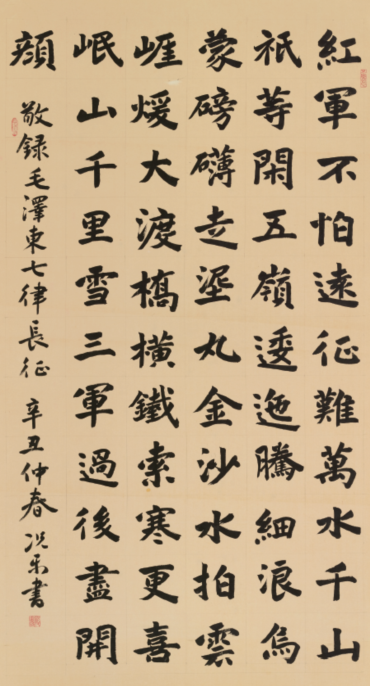 紅軍不怕遠征難萬水千山
祇等閑五嶺逶迤騰細浪烏
蒙磅礴走埿丸金沙水拍雲
崕煖大渡橋橫鐵索寒更喜
岷山千里雪三軍過後盡開
顏
敬録毛澤東七律長征 辛丑仲春 况樂書